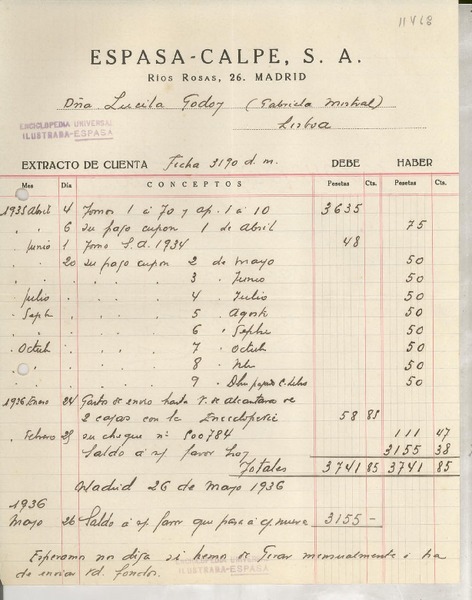 11468
ESPASA-CALPE, S. A.
RÍOS ROSAS, 26. MADRID
Dña Lucila Godoy (Gabriela Mistral)
Lisboa
ENCICLOPEDIA UNIVERSAL
ILUSTRADA-ESPASA
EXTRACTO DE CUENTA Ficha 3190 d.m. DEBE HABER
Mes Día CONCEPTOS Pesetas Cts. Pesetas Cts.
1935 Abril 4 Tomos 1 á 70 y ap. 1 á 10 3635
" " 6 su pago cupon 1 de Abril 75
Junio 1 Tomo S.A. 1934 48
" 20 su pago cupon 2 de Mayo 50
" " " " 3 " Junio 50
Julio " " " 4 " Julio 50
Septb " " " 5 " Agosto 50
" " " 6 " Sepbre 50
Octub " " " 7 " Octub 50
" " " 8 " Nbre 50
" " " 9 " Dbre 50
1936 Enero 24 Gasto de envio hasta V. de Alcantara de
2 cajas con la Enciclopedia 58 85
" Febrero 25 su cheque nº 500784 111 47
Saldo á n/ favor hoy 3155 38
Totales 3741 85 3741 85
Madrid 26 de Mayo 1936
1936
Mayo 26 Saldo á n/ favor que pasa á c/ nueva 3155 -
Esperamos nos diga si hemos de girar mensualmente ó ha
de enviar Vd. fondos.
ENCICLOPEDIA UNIVERSAL
ILUSTRADA-ESPASA